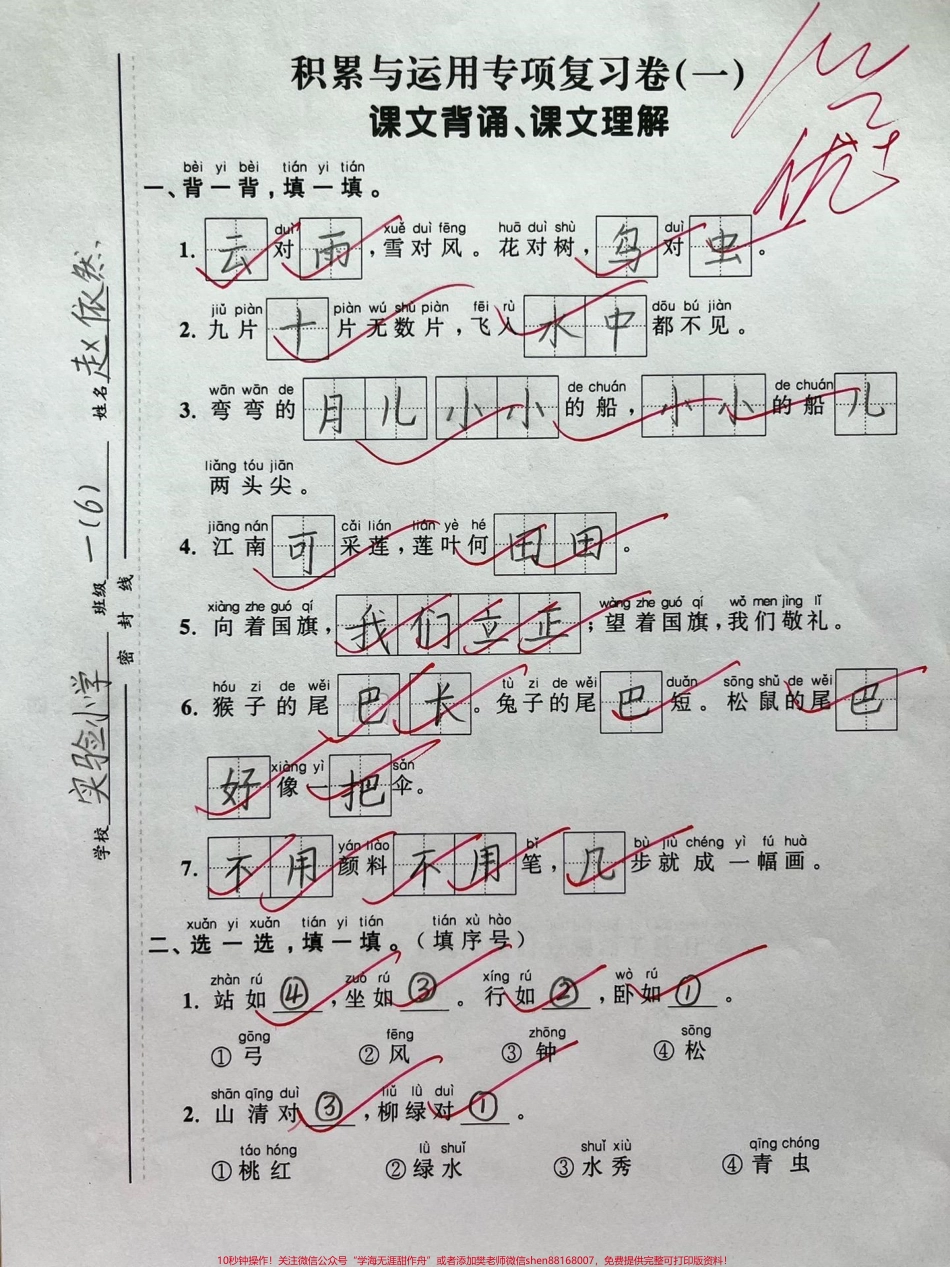 积累与运用专项复习卷(一)
课文背诵、课文理解
优+
bèi yi bèi tián yi tián
一、背一背,填一填。
duì xuě duì fēng huā duì shù duì
1. 云对雨,雪对风。花对树,鸟对虫。
jiǔ piàn piàn wú shù piàn fēi rù dōu bú jiàn
2. 九片十片无数片,飞入水中都不见。
wān wān de de chuán de chuán
3. 弯弯的月儿小小的船,小小的船儿
liǎng tóu jiān
两头尖。
jiāng nán cǎi lián lián yè hé
4. 江南可采莲,莲叶何田田。
xiàng zhe guó qí wàng zhe guó qí wǒ men jìng lǐ
5. 向着国旗,我们立正;望着国旗,我们敬礼。
hóu zi de wěi tù zi de wěi duǎn sōng shǔ de wěi
6. 猴子的尾巴长。兔子的尾巴短。松鼠的尾巴
xiàng yì sǎn
好像一把伞。
yán liào bǐ bù jiù chéng yì fú huà
7. 不用颜料不用笔,几步就成一幅画。
xuǎn yi xuǎn tián yi tián tián xù hào
二、选一选,填一填。(填序号)
zhàn rú zuò rú xíng rú wò rú
1. 站如④,坐如③。行如②,卧如①。
gōng fēng zhōng sōng
①弓 ②风 ③钟 ④松
shān qīng duì liǔ lǜ duì
2. 山清对③,柳绿对①。
táo hóng lǜ shuǐ shuǐ xiù qīng chóng
①桃红 ②绿水 ③水秀 ④青虫
学校实验小学 班级一(6) 姓名赵依然
密封线
10秒钟操作!关注微信公众号“学海无涯甜作舟”或者添加樊老师微信shen88168007,免费提供完整可打印版资料!